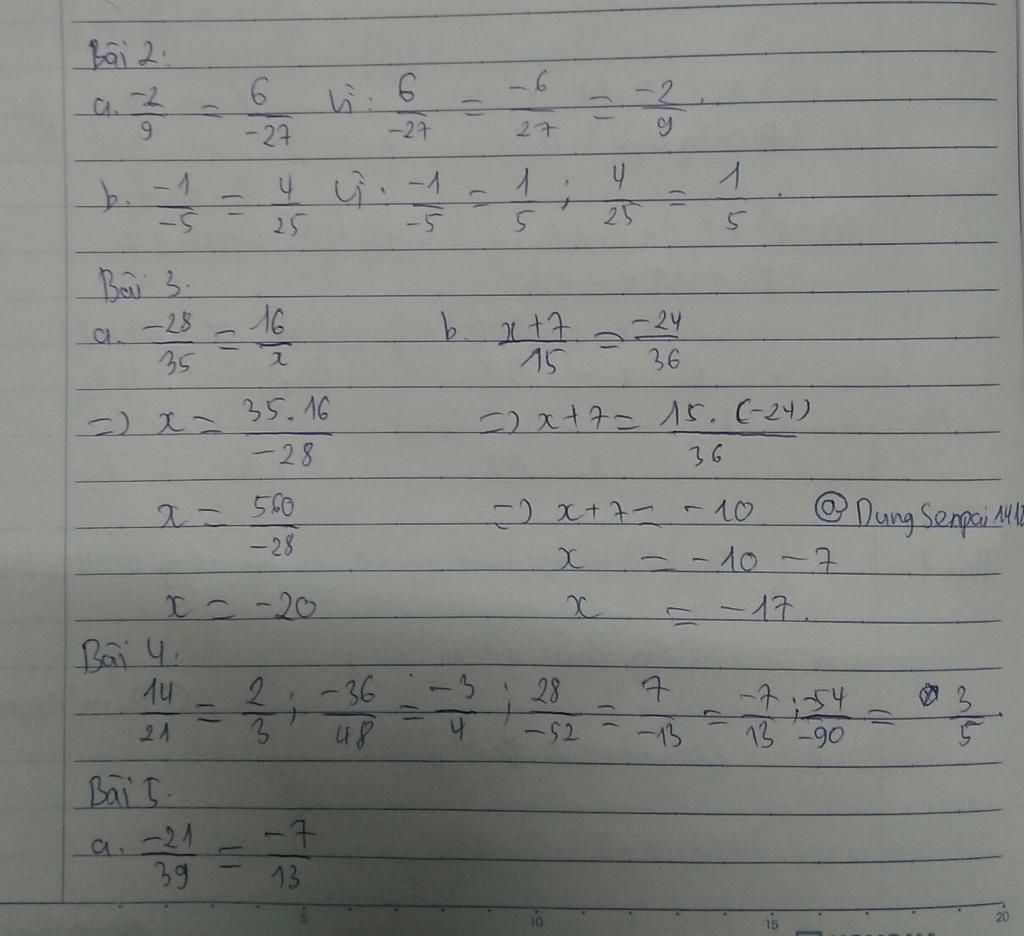 Bài 2:
a. -2/9 = 6/-27 Vì: 6/-27 = -6/27 = -2/9.
b. -1/-5 = 4/25 Vì: -1/-5 = 1/5; 4/25 = 1/5.
Bài 3.
a. -28/35 = 16/x b. x+7/15 = -24/36
=) x = 35.16/-28 =) x+7 = 15.(-24)/36
x = 560/-28 =) x+7 = -10 @DungSenpai141
x = -10 - 7
x = -20 x = -17.
Bài 4.
14/21 = 2/3; -36/48 = -3/4; 28/-52 = 7/-13 = -7/13; -54/-90 = 3/5.
Bài 5.
a. -21/39 = -7/13
5 10 15 20